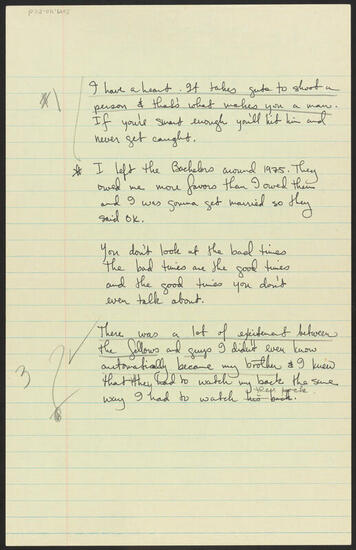 I have a heart. It takes guts to shoot a
person & that's what makes you a man.
If you're smart enough you'll hit him and
never get caught.
* I left the Bachelors around 1975. They
owed me more favors than I owed them
and I was gonna get married so they
said OK.
You don't look at the bad times
The bad times are the good times
and the good times you don't
even talk about.
There was a lot of excitement between
the fellows and guys I didn't even know
automatically became my brother & I knew
3
that they had to watch my back the same
their backs
way I had to watch his back.